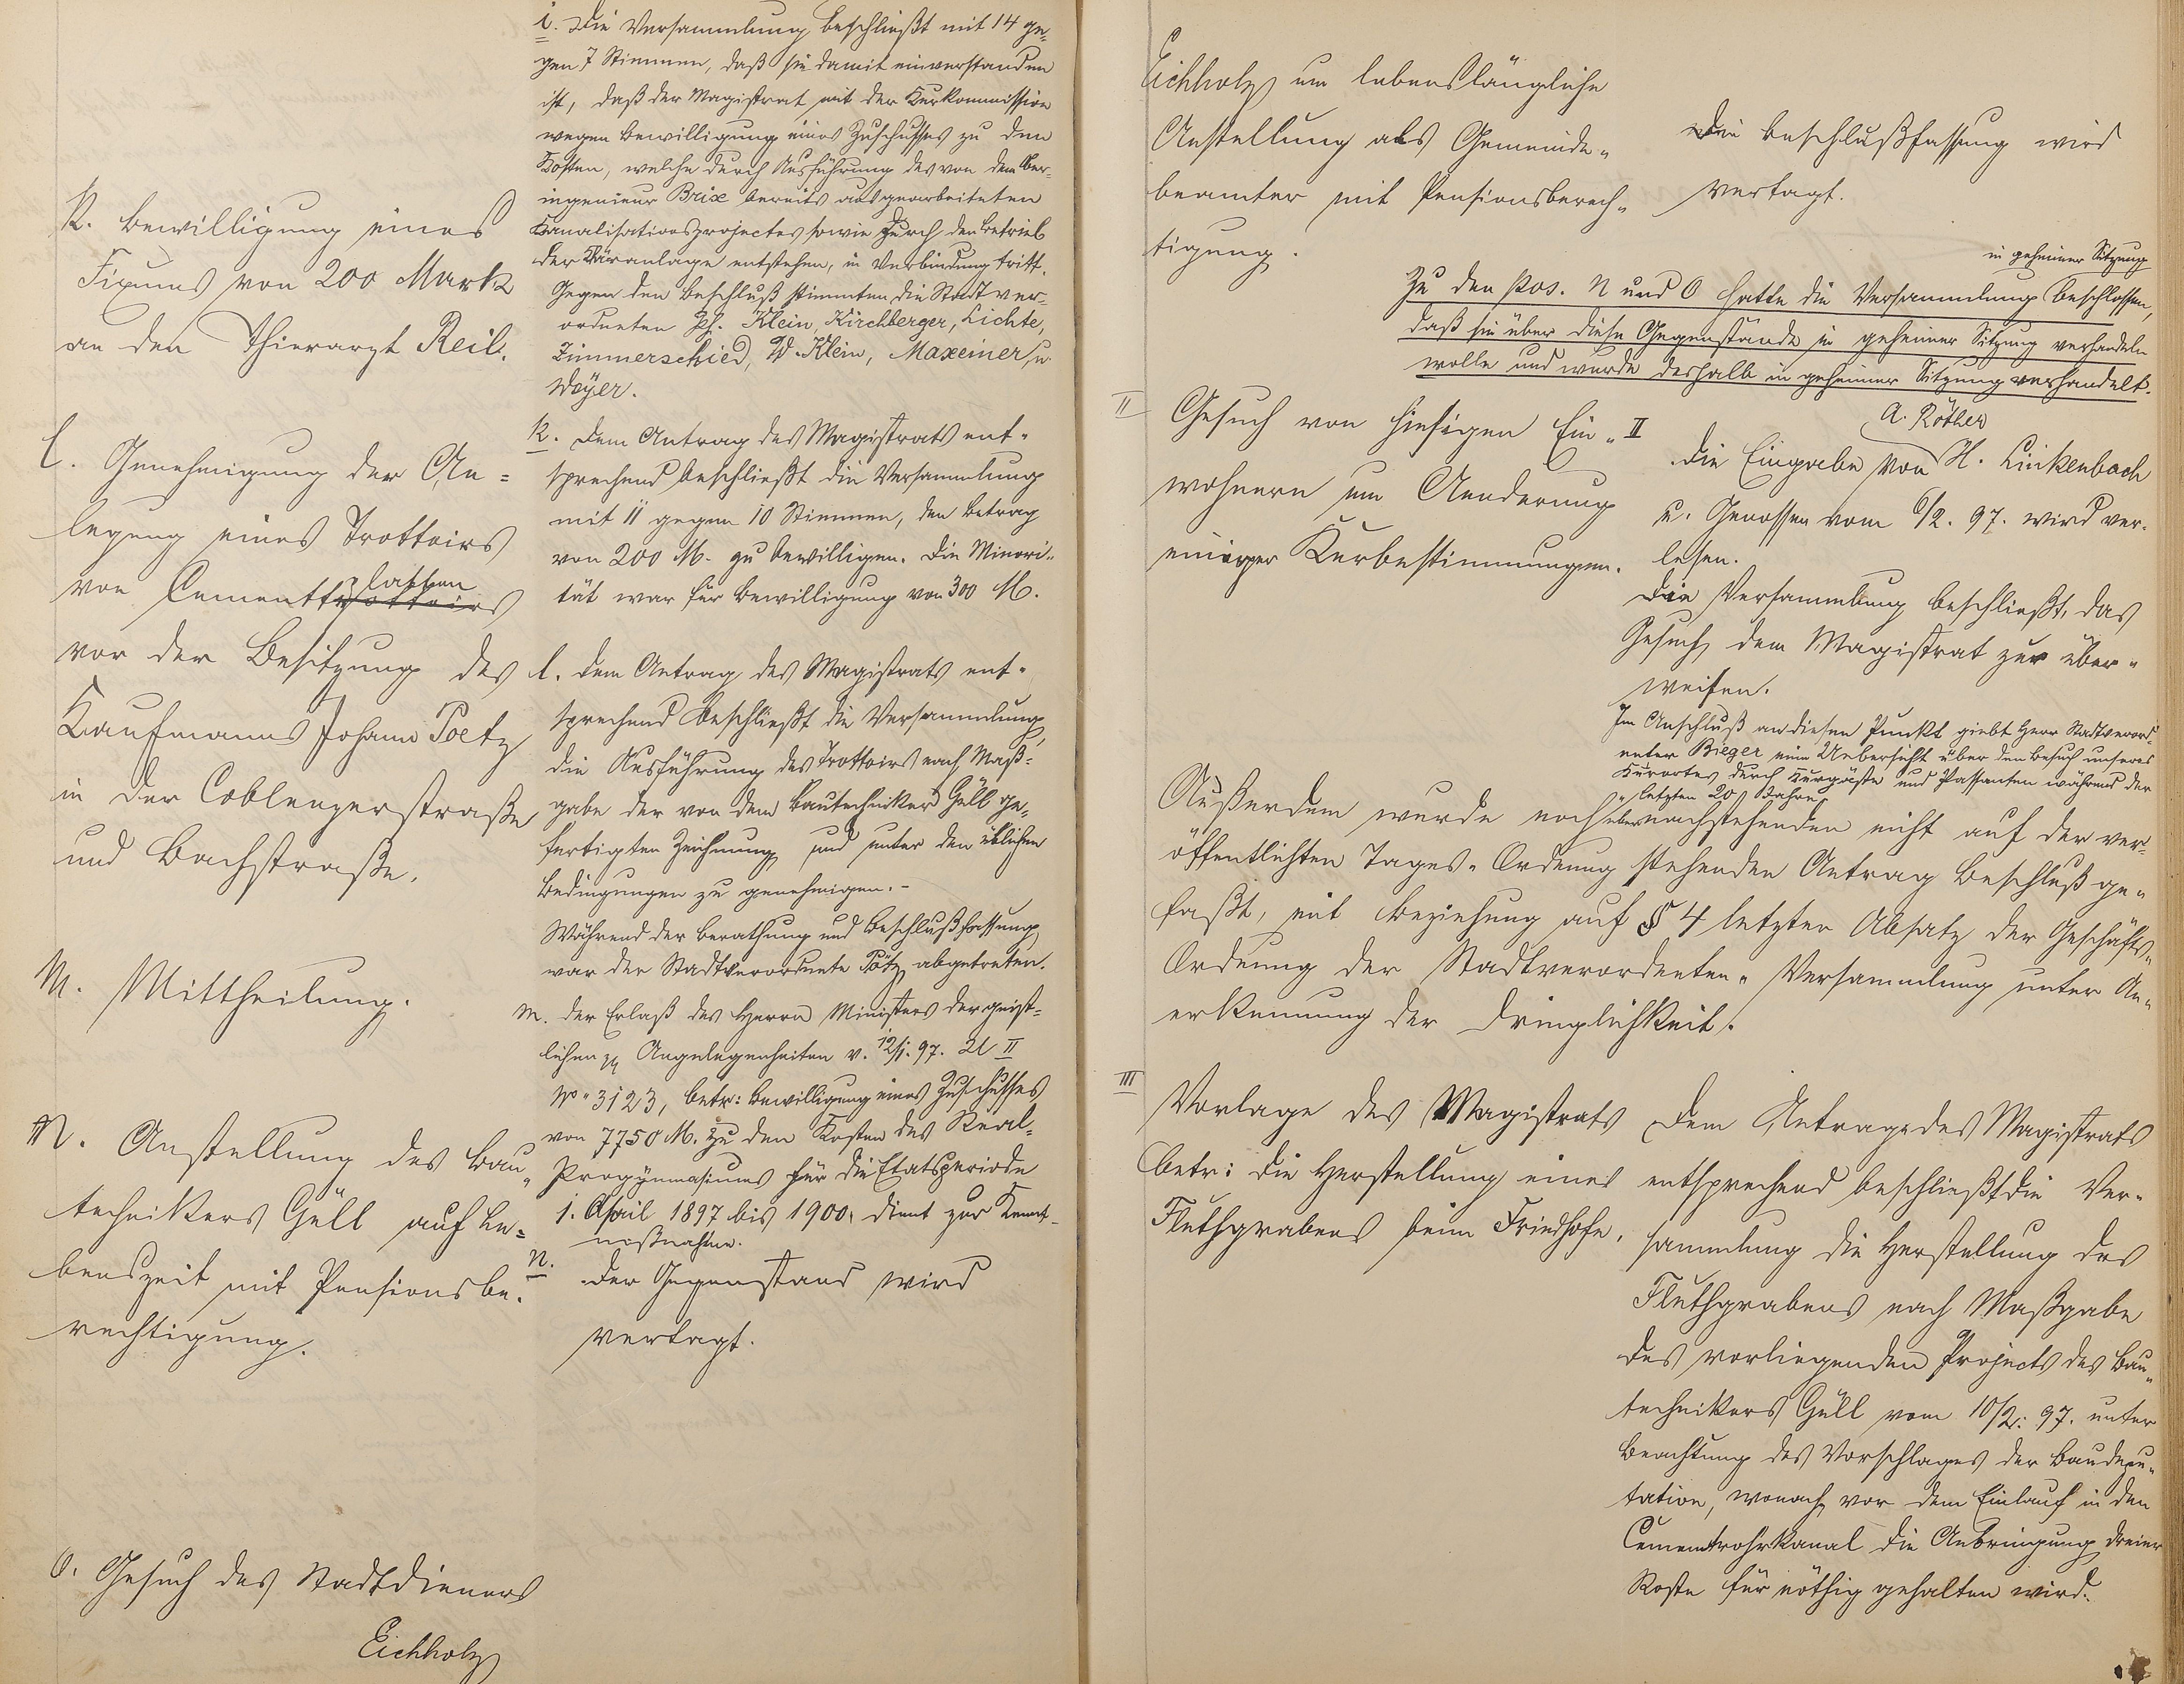 k. Bewilligung eines
Fixums von 200 Mark
an den Thierarzt Reil.
l. Genehmigung der An=
legung eines Trottoirs
von Cementtrottoirs
platten
vor der Besitzung des
Kaufmanns Johann Poetz
in der Coblenzerstraße
und Bachstraße.
M. Mittheilung.
N. Anstellung des Bau=
technikers Güll auf Le=
benszeit mit Pensionsbe=
rechtigung.
O. Gesuch des Stadtdieners
Eichholz
i. Die Versammlung beschließt mit 14 ge=
gen 7 Stimmen, daß sie damit einverstanden
ist, daß der Magistrat mit der Kurkommission
wegen Bewilligung eines Zuschusses zu den
Kosten, welche durch Ausführung des von dem Ober=
ingenieur Brix bereits ausgearbeiteten
Kanalisationsprojectes sowie durch den Betrieb
der Kläranlage entstehen, in Verbindung tritt.
Gegen den Beschluß stimmten die Stadtver=
ordneten Jos. Klein, Kirchberger, Lichte,
Zimmerschied, W. Klein, Maxeiner u
Weÿer.
k. Dem Antrag des Magistrats ent=
sprechend beschließt die Versammlung
mit 11 gegen 10 Stimmen, den Betrag
von 200 M. zu bewilligen. Die Minori=
tät war für Bewilligung von 300 M.
l. Dem Antrag des Magistrats ent=
sprechend beschließt die Versammlung,
die Ausführung des Trottoirs nach Maß=
gabe der von dem Bautechniker Güll ge=
fertigten Zeichnung und unter den üblichen
Bedingungen zu genehmigen.-
Während der Berathung und Beschlußfassung
war der Stadtverordnete Pötz abgetreten.
m. Der Erlaß des Herrn Ministers der geist=
lichen pp Angelegenheiten v. 12/1. 97. U II
No 3123, betr: Bewilligung eines Zuschusses
von 7750 M. zu den Kosten des Real=
Progÿmnasiums für die Etatsperiode
1. April 1897 bis 1900, dient zur Kennt=
nißnahme.
n. Der Gegenstand wird
vertagt.
Eichholz um lebenslängliche
Anstellung als Gemeinde=
beamter mit Pensionsberech=
tigung.
Die Beschlußfassung wird
vertagt.
in geheimer Sitzung
Zu den Pos. N und O hatte die Versammlung beschlossen,
daß sie über diese Gegenstände in geheimer Sitzung verhandeln
wolle und wurde deshalb in geheimer Sitzung verhandelt.
II Gesuch von hiesigen Ein=
wohnern um Aenderung
einiger Kurbestimmungen.
A. Röther
II Die Eingabe von H. Linkenbach
u. Genossen vom 6/2. 97. wird ver=
lesen.
Die Versammlung beschließt, das
Gesuch dem Magistrat zur über=
weisen.
Im Anschluß an diesen Punkt giebt Herr Stadtverord=
neter Bieger eine Uebersicht über den Besuch unseres
Kurortes durch Kurgäste und Passanten während der
letzten 20 Jahre.
Außerdem wurde noch über nachstehenden nicht auf der ver=
öffentlichten Tages=Ordnung stehenden Antrag Beschluß ge=
faßt, mit Beziehung auf § 4 letzter Absatz der Geschäfts=
Ordnung der Stadtverordneten=Versammlung unter An=
erkennung der Dringlichkeit.
III Vorlage des Magistrats
betr: die Herstellung eines
Fluthgrabens beim Friedhofe.
Dem Antrage des Magistrats
entsprechend beschließt die Ver=
sammlung die Herstellung des
Fluthgrabens nach Maßgabe
des vorliegenden Projects des Bau=
technikers Güll vom 10/2. 97. unter
Beachtung des Vorschlages der Baudepu=
tation, wonach vor dem Einlauf in den
Cementrohrkanal die Anbringung dreier
Roste für nöthig gehalten wird.